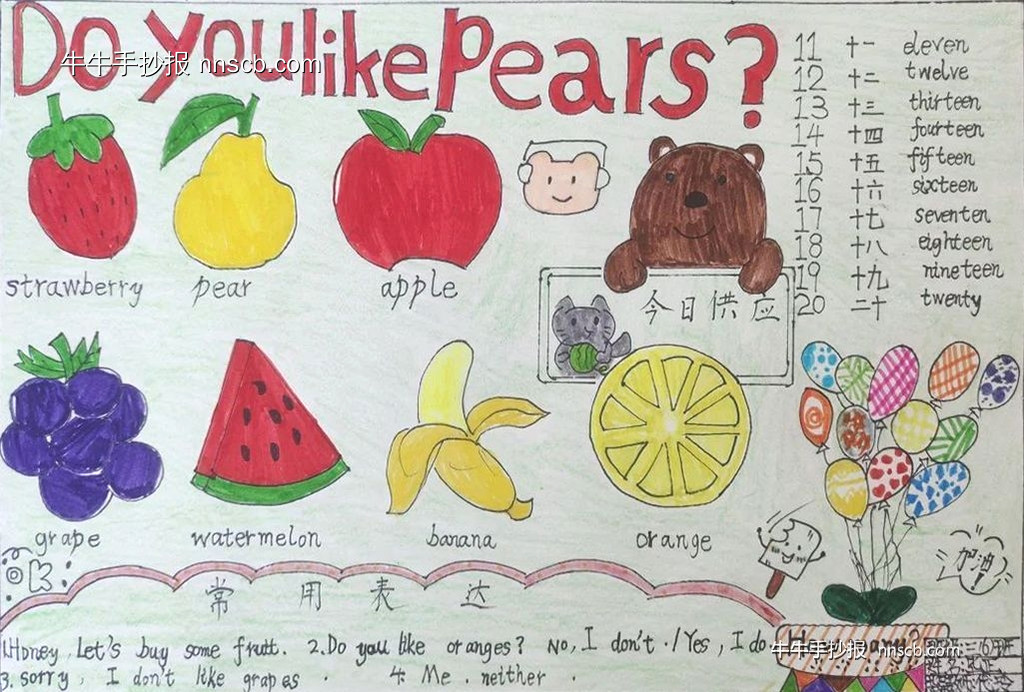 Do you like Pears?
牛牛手抄报 nnscb.com
11 十一 eleven
12 十二 twelve
13 十三 thirteen
14 十四 fourteen
15 十五 fifteen
16 十六 sixteen
17 十七 seventen
18 十八 eighteen
19 十九 nineteen
20 二十 twenty
strawberry pear apple
今日供应
grape watermelon banana orange
OK
加油!
常用表达
1.Honey, Let's buy some fruit. 2.Do you like oranges? No, I don't ./Yes, I do
3. sorry, I don't like grapes . 4. Me . neither .
How many?
牛牛手抄报 nnscb.com